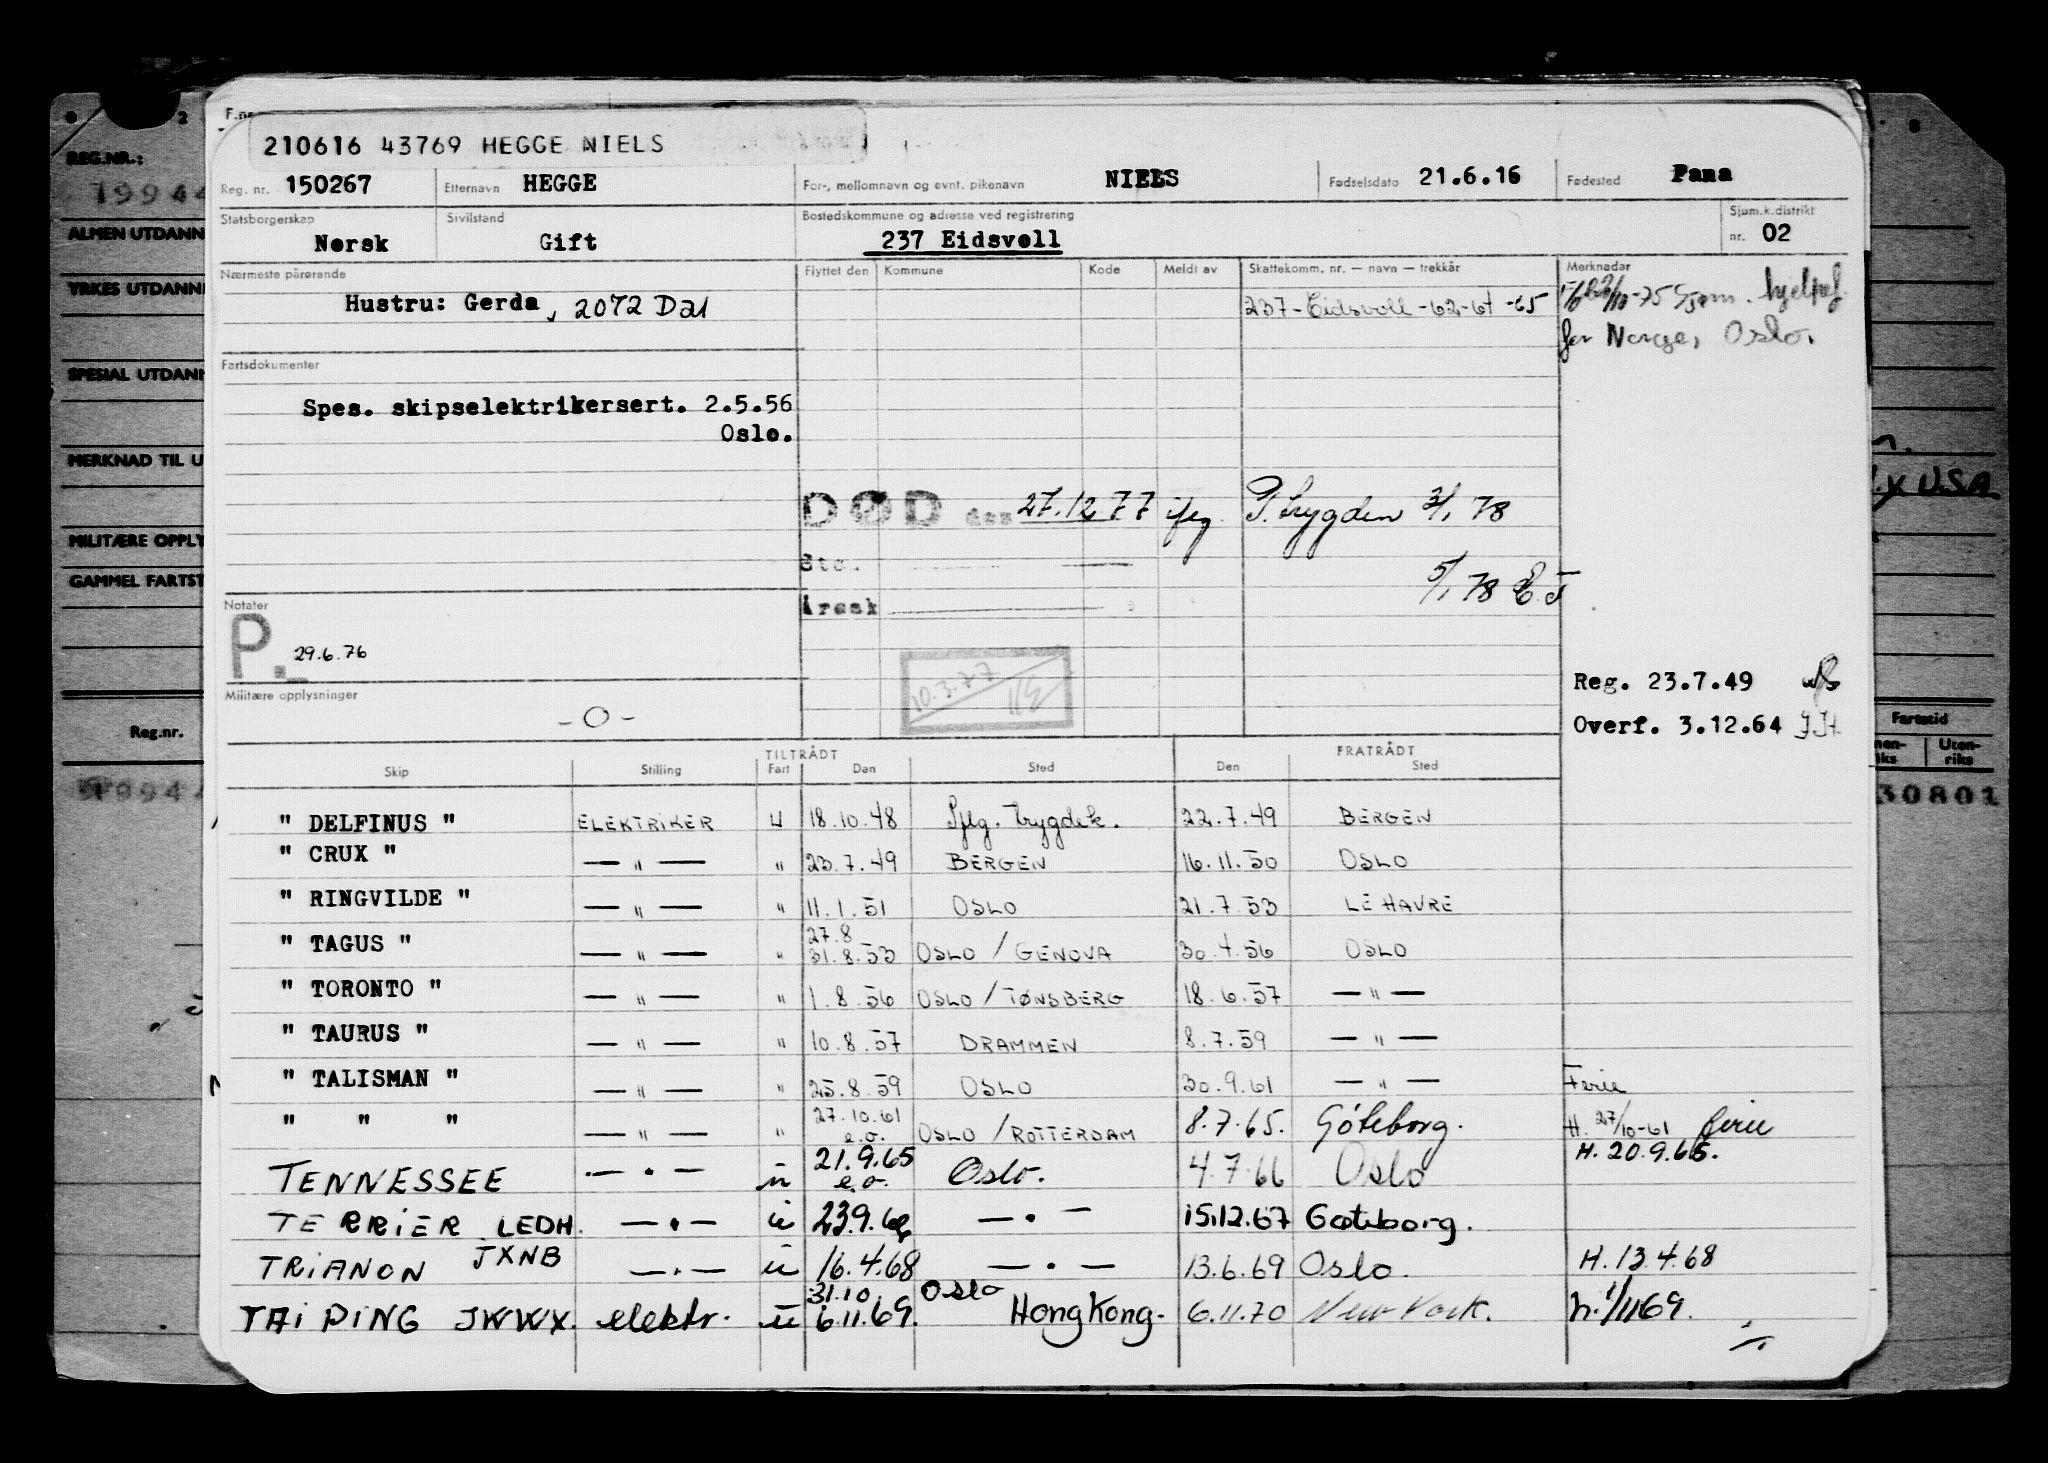 F.nr.
210616 43769 HEGGE NIELS
Reg. nr. 150267 Etternavn HEGGE For-, mellomnavn og evnt. pikenavn NIELS Fødselsdato 21.6.16 Fødested Fana
Statsborgerskap Norsk Sivilstand Gift Bostedskommune og adresse ved registrering 237 Eidsvoll Sjøm.k.distrikt nr. 02
Nærmeste pårørende Flyttet den Kommune Kode Meldt av Skattekomm. nr. — navn — trekkår Merknader
Hustru: Gerda, 2072 Dal 237-Eidsvoll-62-64-65
for Norge, Oslo.
Fartsdokumenter
Spes. skipselektrikersert. 2.5.56
Oslo.
DØD den 27.12.77 iflg. P.trygden 3/1 78
Sto.
5/1 78 E.J
Årsak
Notater
P. 29.6.76
10.3.77
Reg. 23.7.49
Militære opplysninger
-0-
Overf. 3.12.64
TILTRÅDT FRATRÅDT
Skip Stilling Fart Den Sted Den Sted
" DELFINUS " ELEKTRIKER U 18.10.48 Iflg. trygdek. 22.7.49 BERGEN
" CRUX " — " — " 23.7.49 BERGEN 16.11.50 OSLO
" RINGVILDE " — " — " 11.1.51 OSLO 21.7.53 LE HAVRE
" TAGUS " — " — " 27.8 31.8.53 OSLO / GENOVA 30.4.56 OSLO
" TORONTO " — " — " 1.8.56 OSLO / TØNSBERG 18.6.57 — " —
" TAURUS " — " — " 10.8.57 DRAMMEN 8.7.59 — " —
" TALISMAN " — " — " 25.8.59 OSLO 30.9.61 — " — Ferie
" " " — " — " 27.10.61 e.o. OSLO / ROTTERDAM 8.7.65. Göteborg. H. 27/10-61 ferie
H. 20.9.65.
TENNESSEE — " — u 21.9.65 e.o. Oslo. 4.7.66 Oslo
TERRIER LEDH. — " — u 23.9.66 — " — 15.12.67 Gøteborg.
TRIANON JXNB — " — u 16.4.68 — " — 13.6.69 Oslo. H. 13.4.68
TAI PING JWWX. elektr. u 31.10 6.11.69. Oslo Hong Kong. 6.11.70 New York. h. 1/11 69.
REG.NR.:
ALMEN UTDANN
YRKES UTDANN
SPESIAL UTDANN
MERKNAD TIL U
MILITÆRE OPPLY
GAMMEL FARTST
Reg.nr.
USA
Fartstid
Uten-
riks
30801